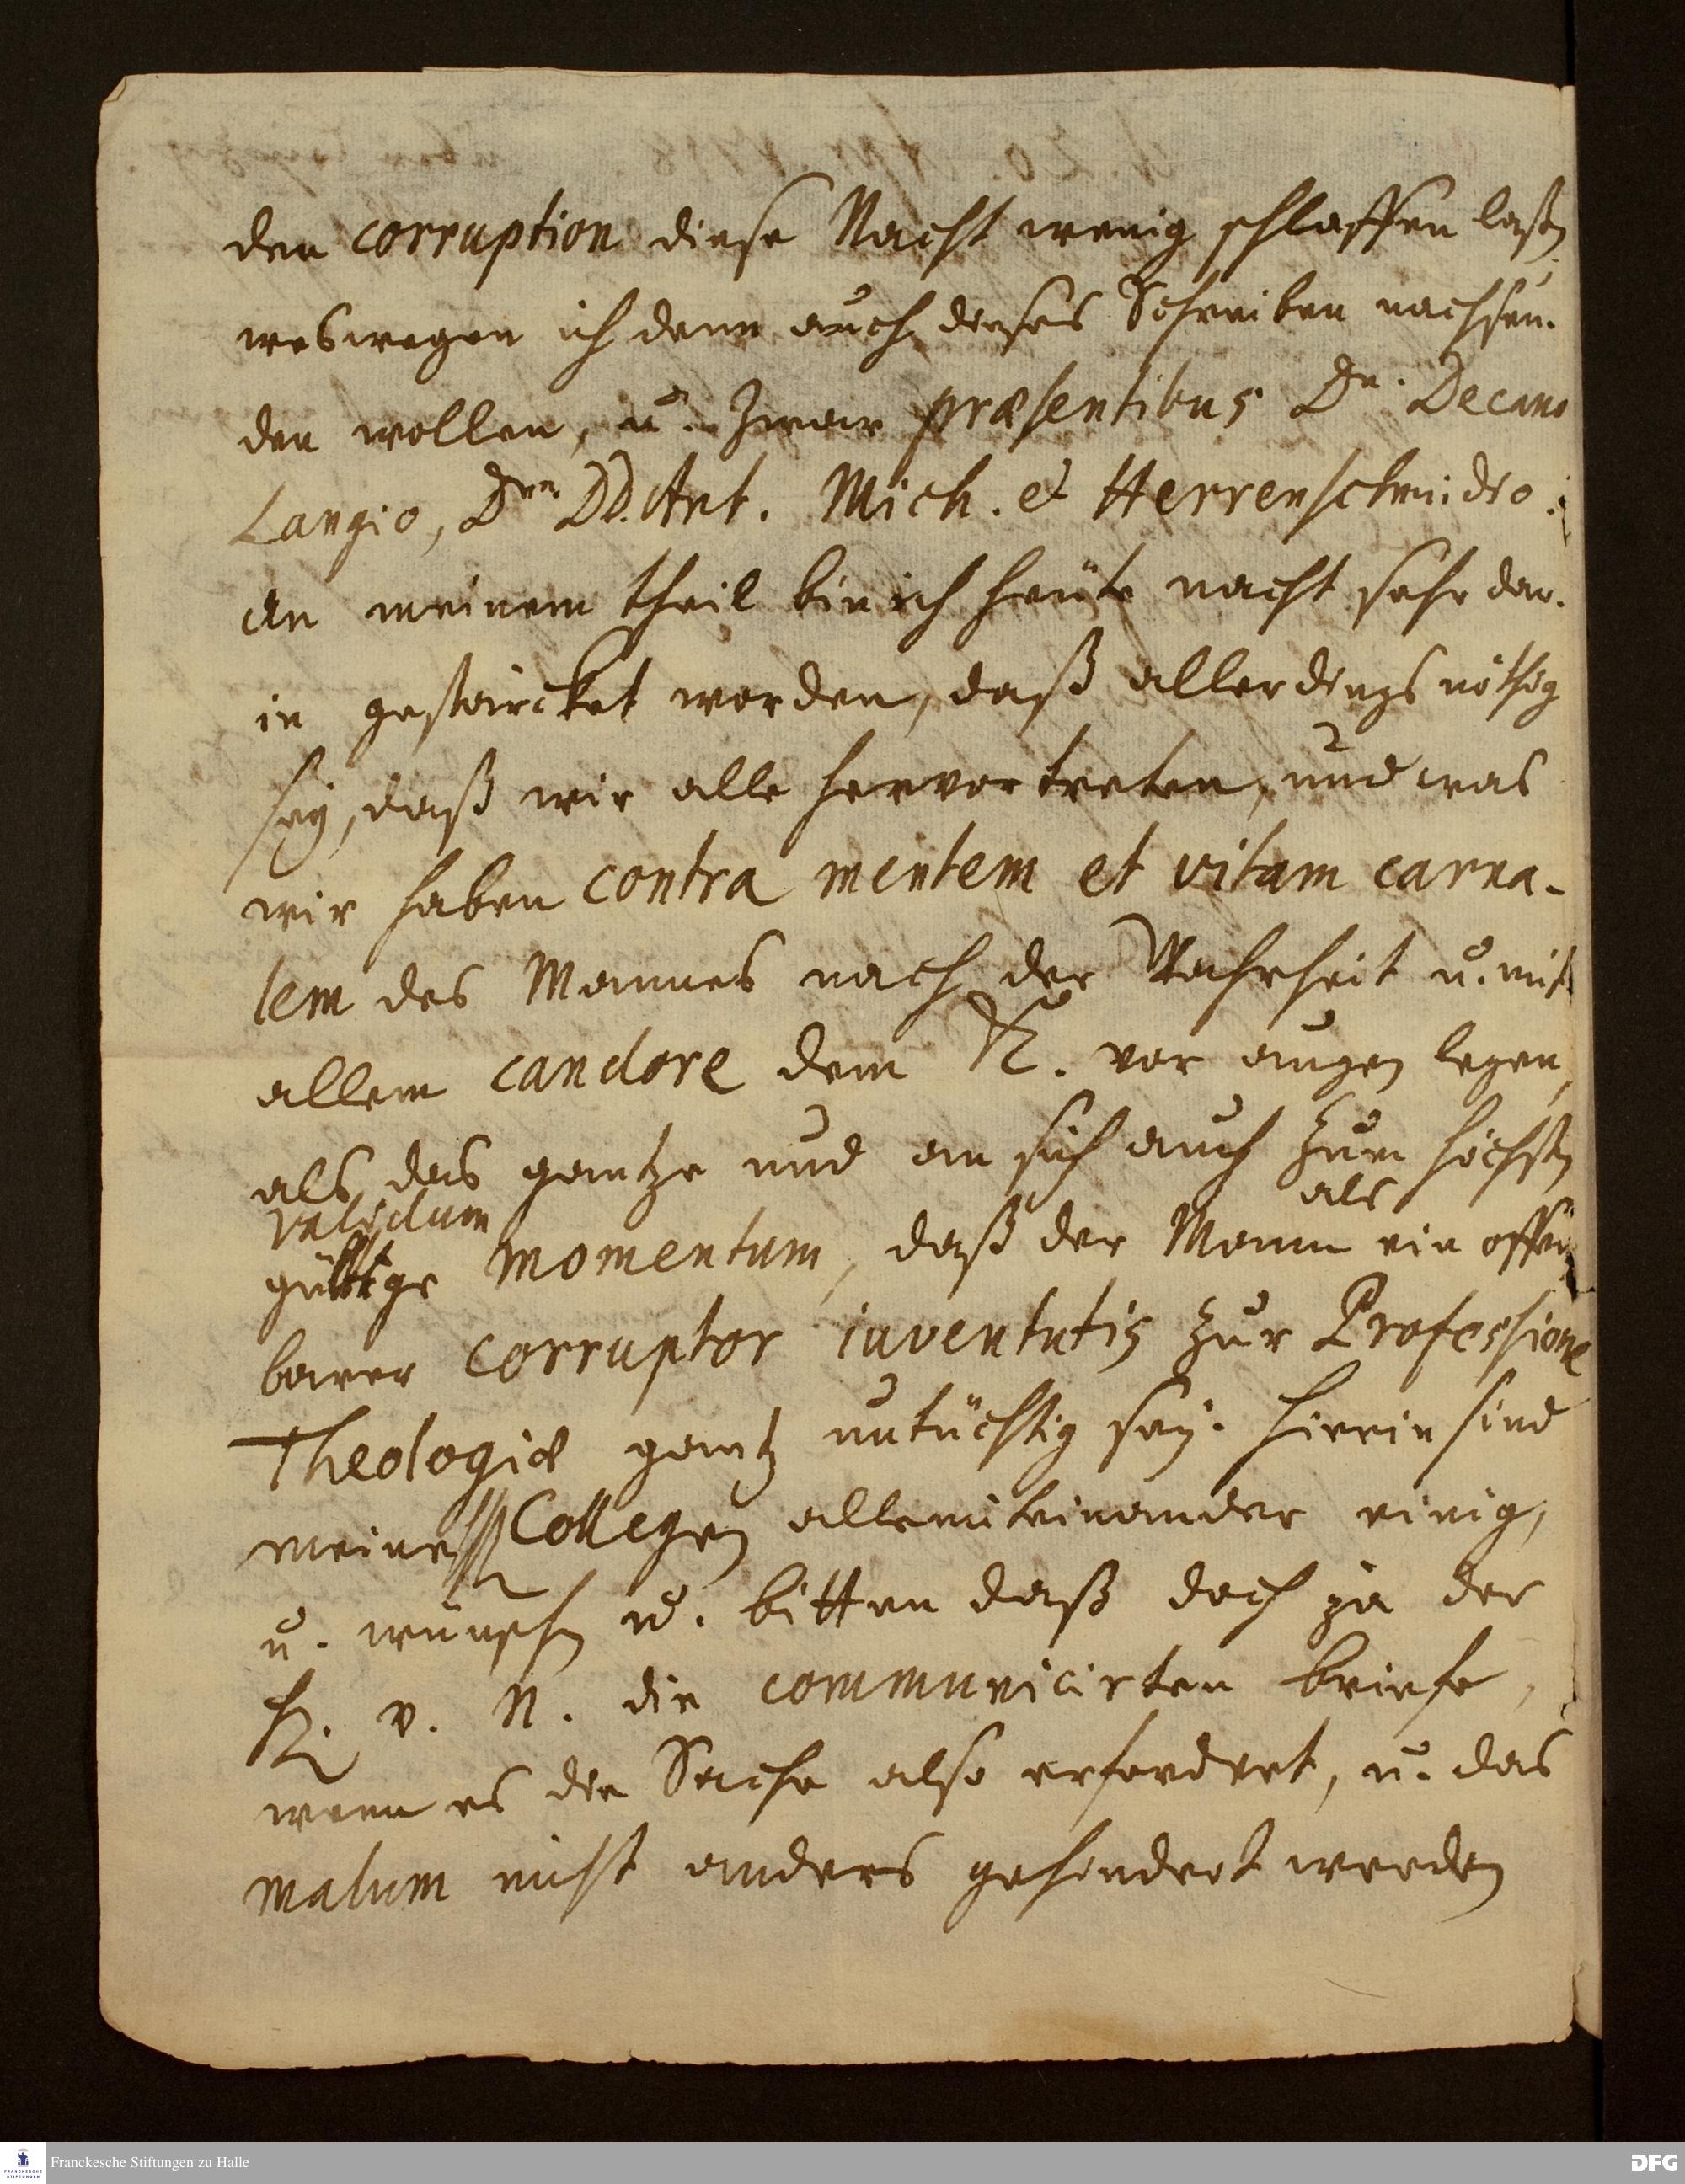 den corruption diese Nacht wenig schlaffen laßen
weswegen ich denn auch dieses Schreiben nachsen-
den wollen, u. zwar præsentibus Dn. Decano
Langio, Dnn DD. Ant. Mich. et Herrenschmidio.
An meinem theil bin ich heüte nacht sehr dar-
in gestärcket worden, daß allerdings nöthig
sey, daß wir alle hervor treten, und was
wir haben contra mentem et vitam carna-
lem des Mannes nach der Wahrheit u. mit
allem candore dem K. vor augen legen,
als das gantze und an sich auch zum höchsten
validum
gültige momentum, daß der Mann als ein offen
barer corruptor iuventutis zur Professione
Theologiæ gantz untüchtig sey. Hierin sind
meine Collegen alle miteinander einig,
u. wünschen u. bitten daß doch ja der
H. v. N. die communicirten briefe,
wenn es die Sache also erfordert, u. das
malum nicht anders gehindert werden
Franckesche Stiftungen zu Halle
DFG